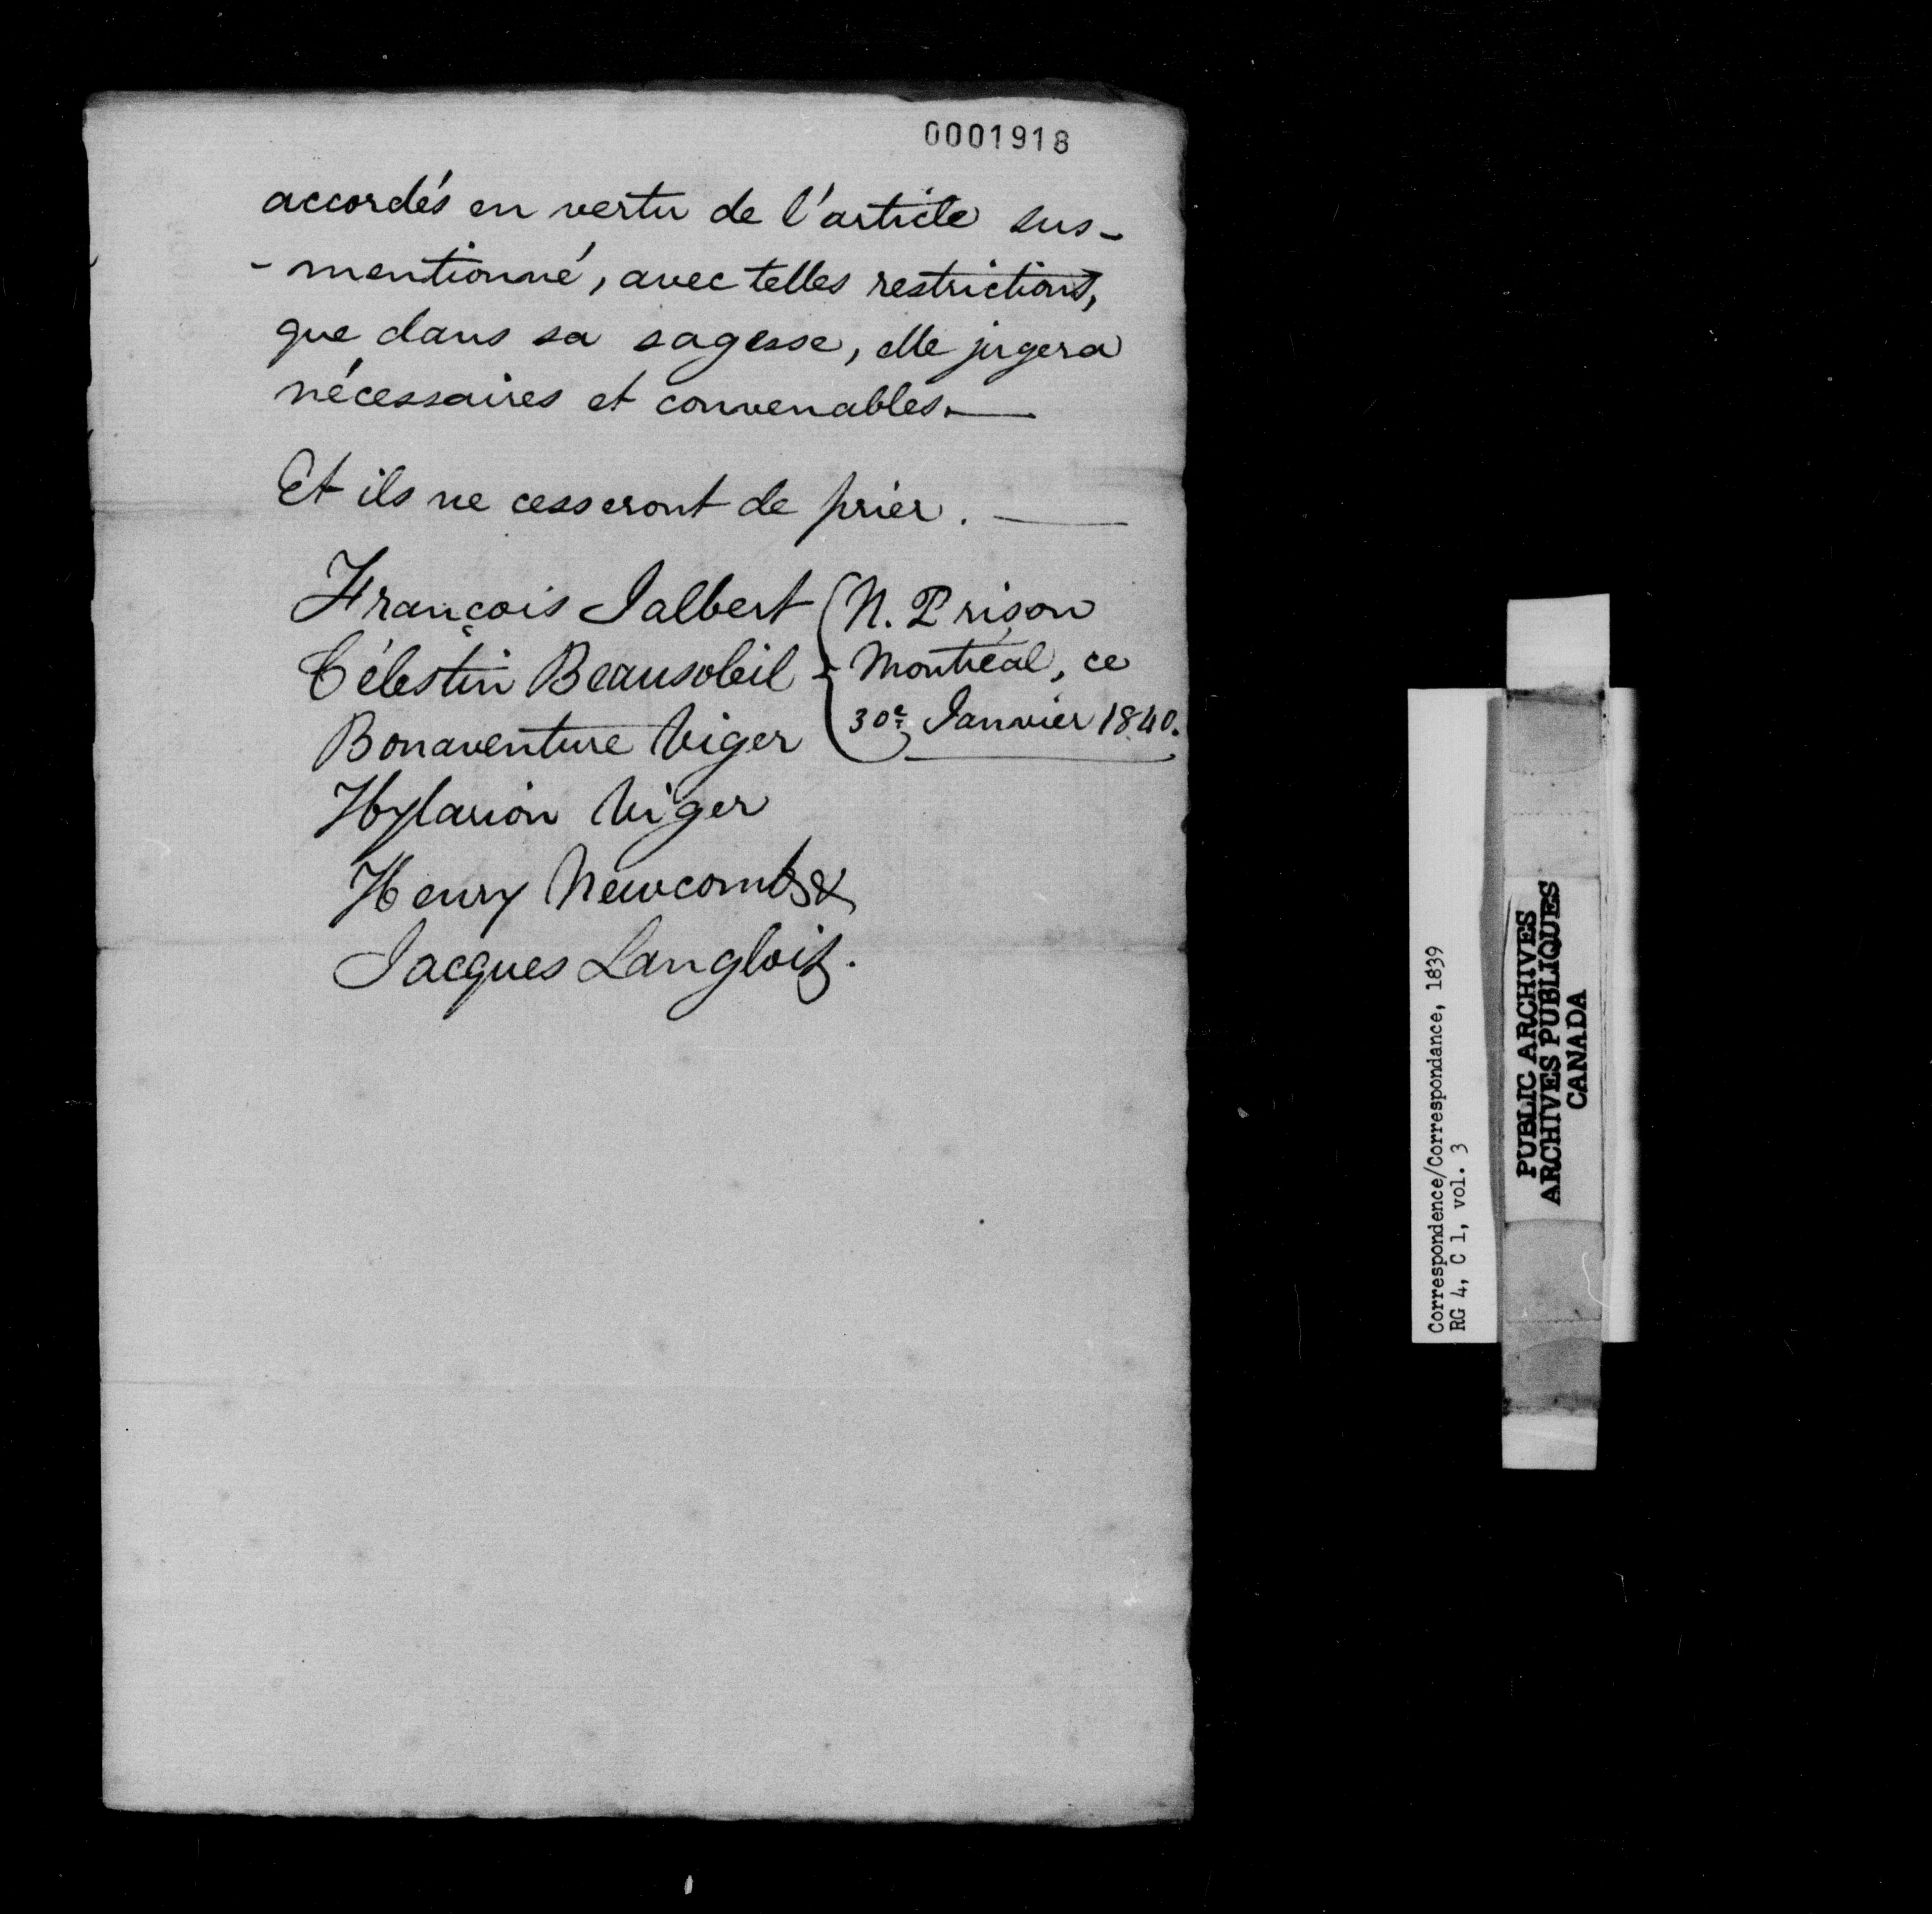 0001918
accordés en vertu de l'article sus-
-mentionné, avec telles restrictions,
que dans sa sagesse, elle jugera
nécessaires et convenables.—
Et ils ne cesseront de prier. —
François Jalbert
Célestin Beausoleil
Bonaventure Viger
Hylarion Viger
Henry Newcomb &
Jacques Langlois.
N. Prison
Montréal, ce
30e Janvier 1840.
Correspondence/Correspondance, 1839
RG 4, C 1, vol. 3
PUBLIC ARCHIVES
ARCHIVES PUBLIQUES
CANADA